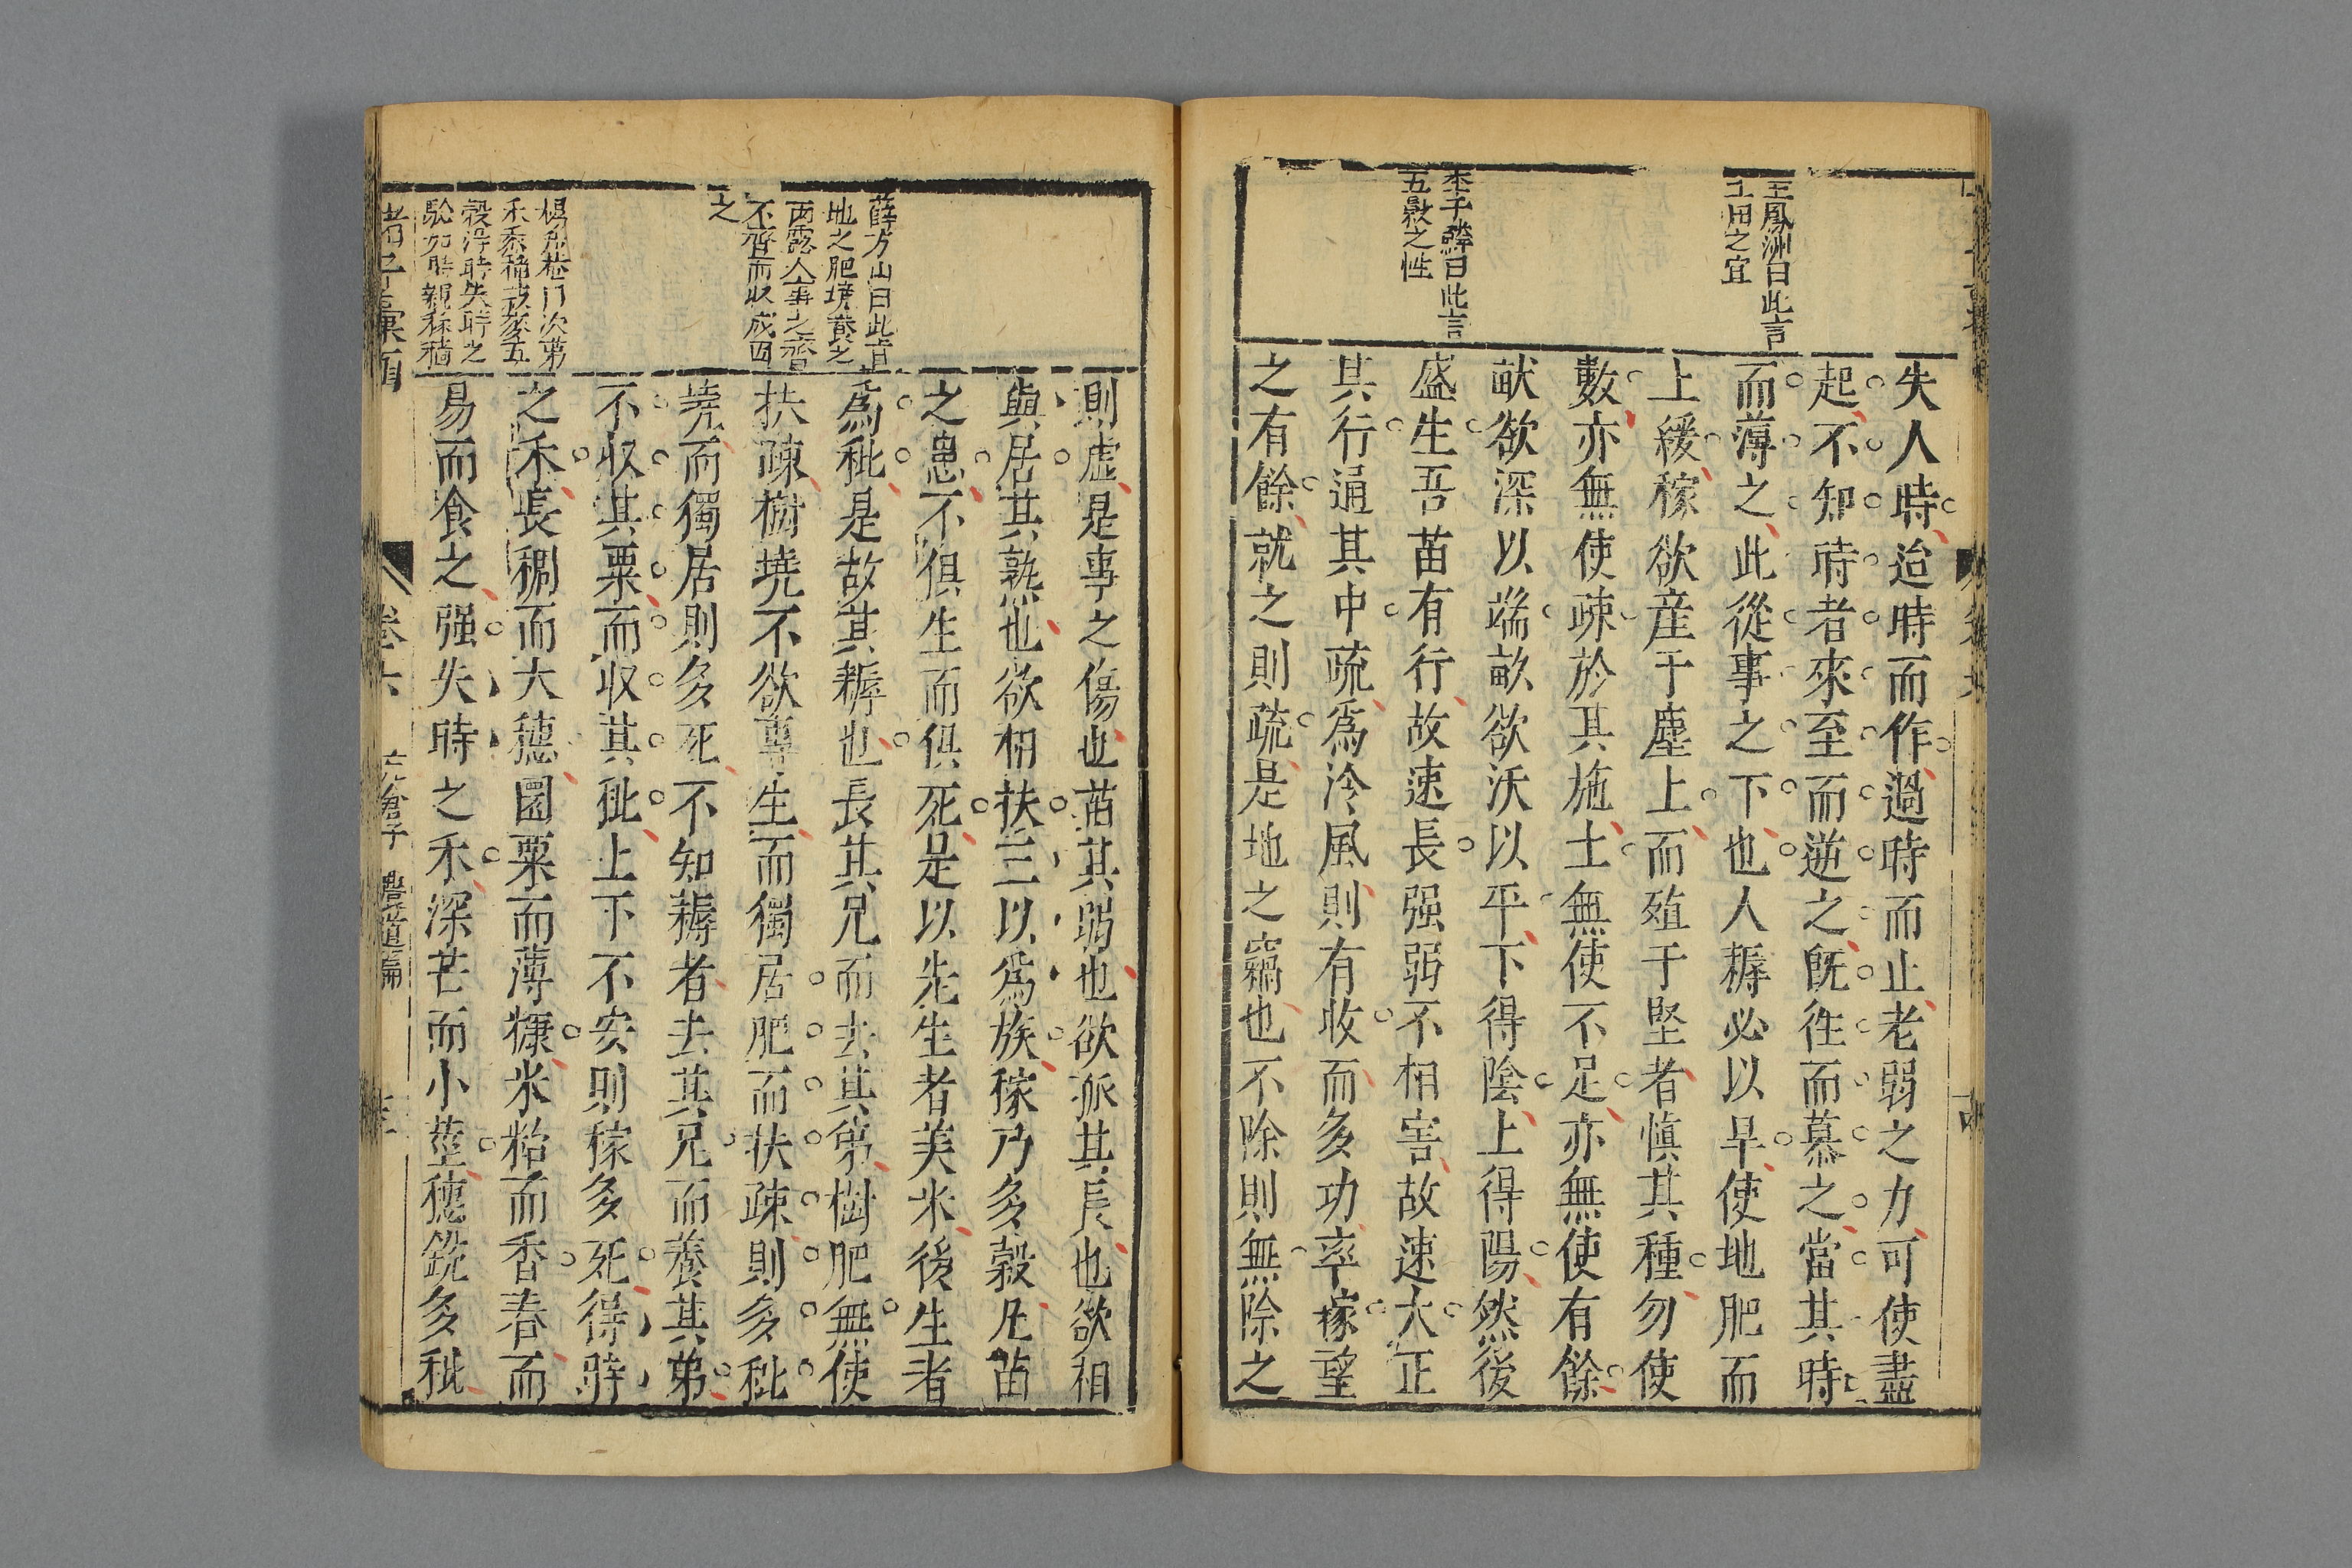 王鳳洲曰此言
土田之宜
李于鱗曰此言
五畝之性
失人時迨時而作過時而止老弱之力可使盡
起不知時者來至而逆之既徃而慕之當其時
而薄之此從事之下也人耨必以旱使地肥而
上緩稼欲産于塵上而殖于堅者慎其種勿使
數亦無使疎於其施土無使不足亦無使有餘
畎欲深以端畝欲沃以平下得陰上得陽然後
盛生吾苗有行故速長强弱不相害故速大正
其行通其中疏爲冷風則有收而多功率稼望
之有餘就之則疏是地之竊也不除則無除之
薛方山曰此言
地之肥墝
雨露人事之齊
不齊而收成因
之
禾黍稻菽麥五
穀得時失時之
則虛是事之傷也苗其弱也欲孤其長也欲相
與居其熟也欲相扶三以爲族稼乃多穀凡苗
之患不俱生而俱死是以先生者美米後生者
爲秕是故其耨也長其兄而去其弟樹肥無使
扶疎樹墝不欲專生而獨居肥而扶疎則多秕
墝而獨居則多死不知耨者去其兄而養其弟
不收其粟而收其秕上下不安則稼多死得時
之禾長稠而大穗圓粟而薄糠米粘而香舂而
易而食之强失時之禾深芒而小莖穗銳多秕
諸子彙函
卷六
亢倉子
農道篇